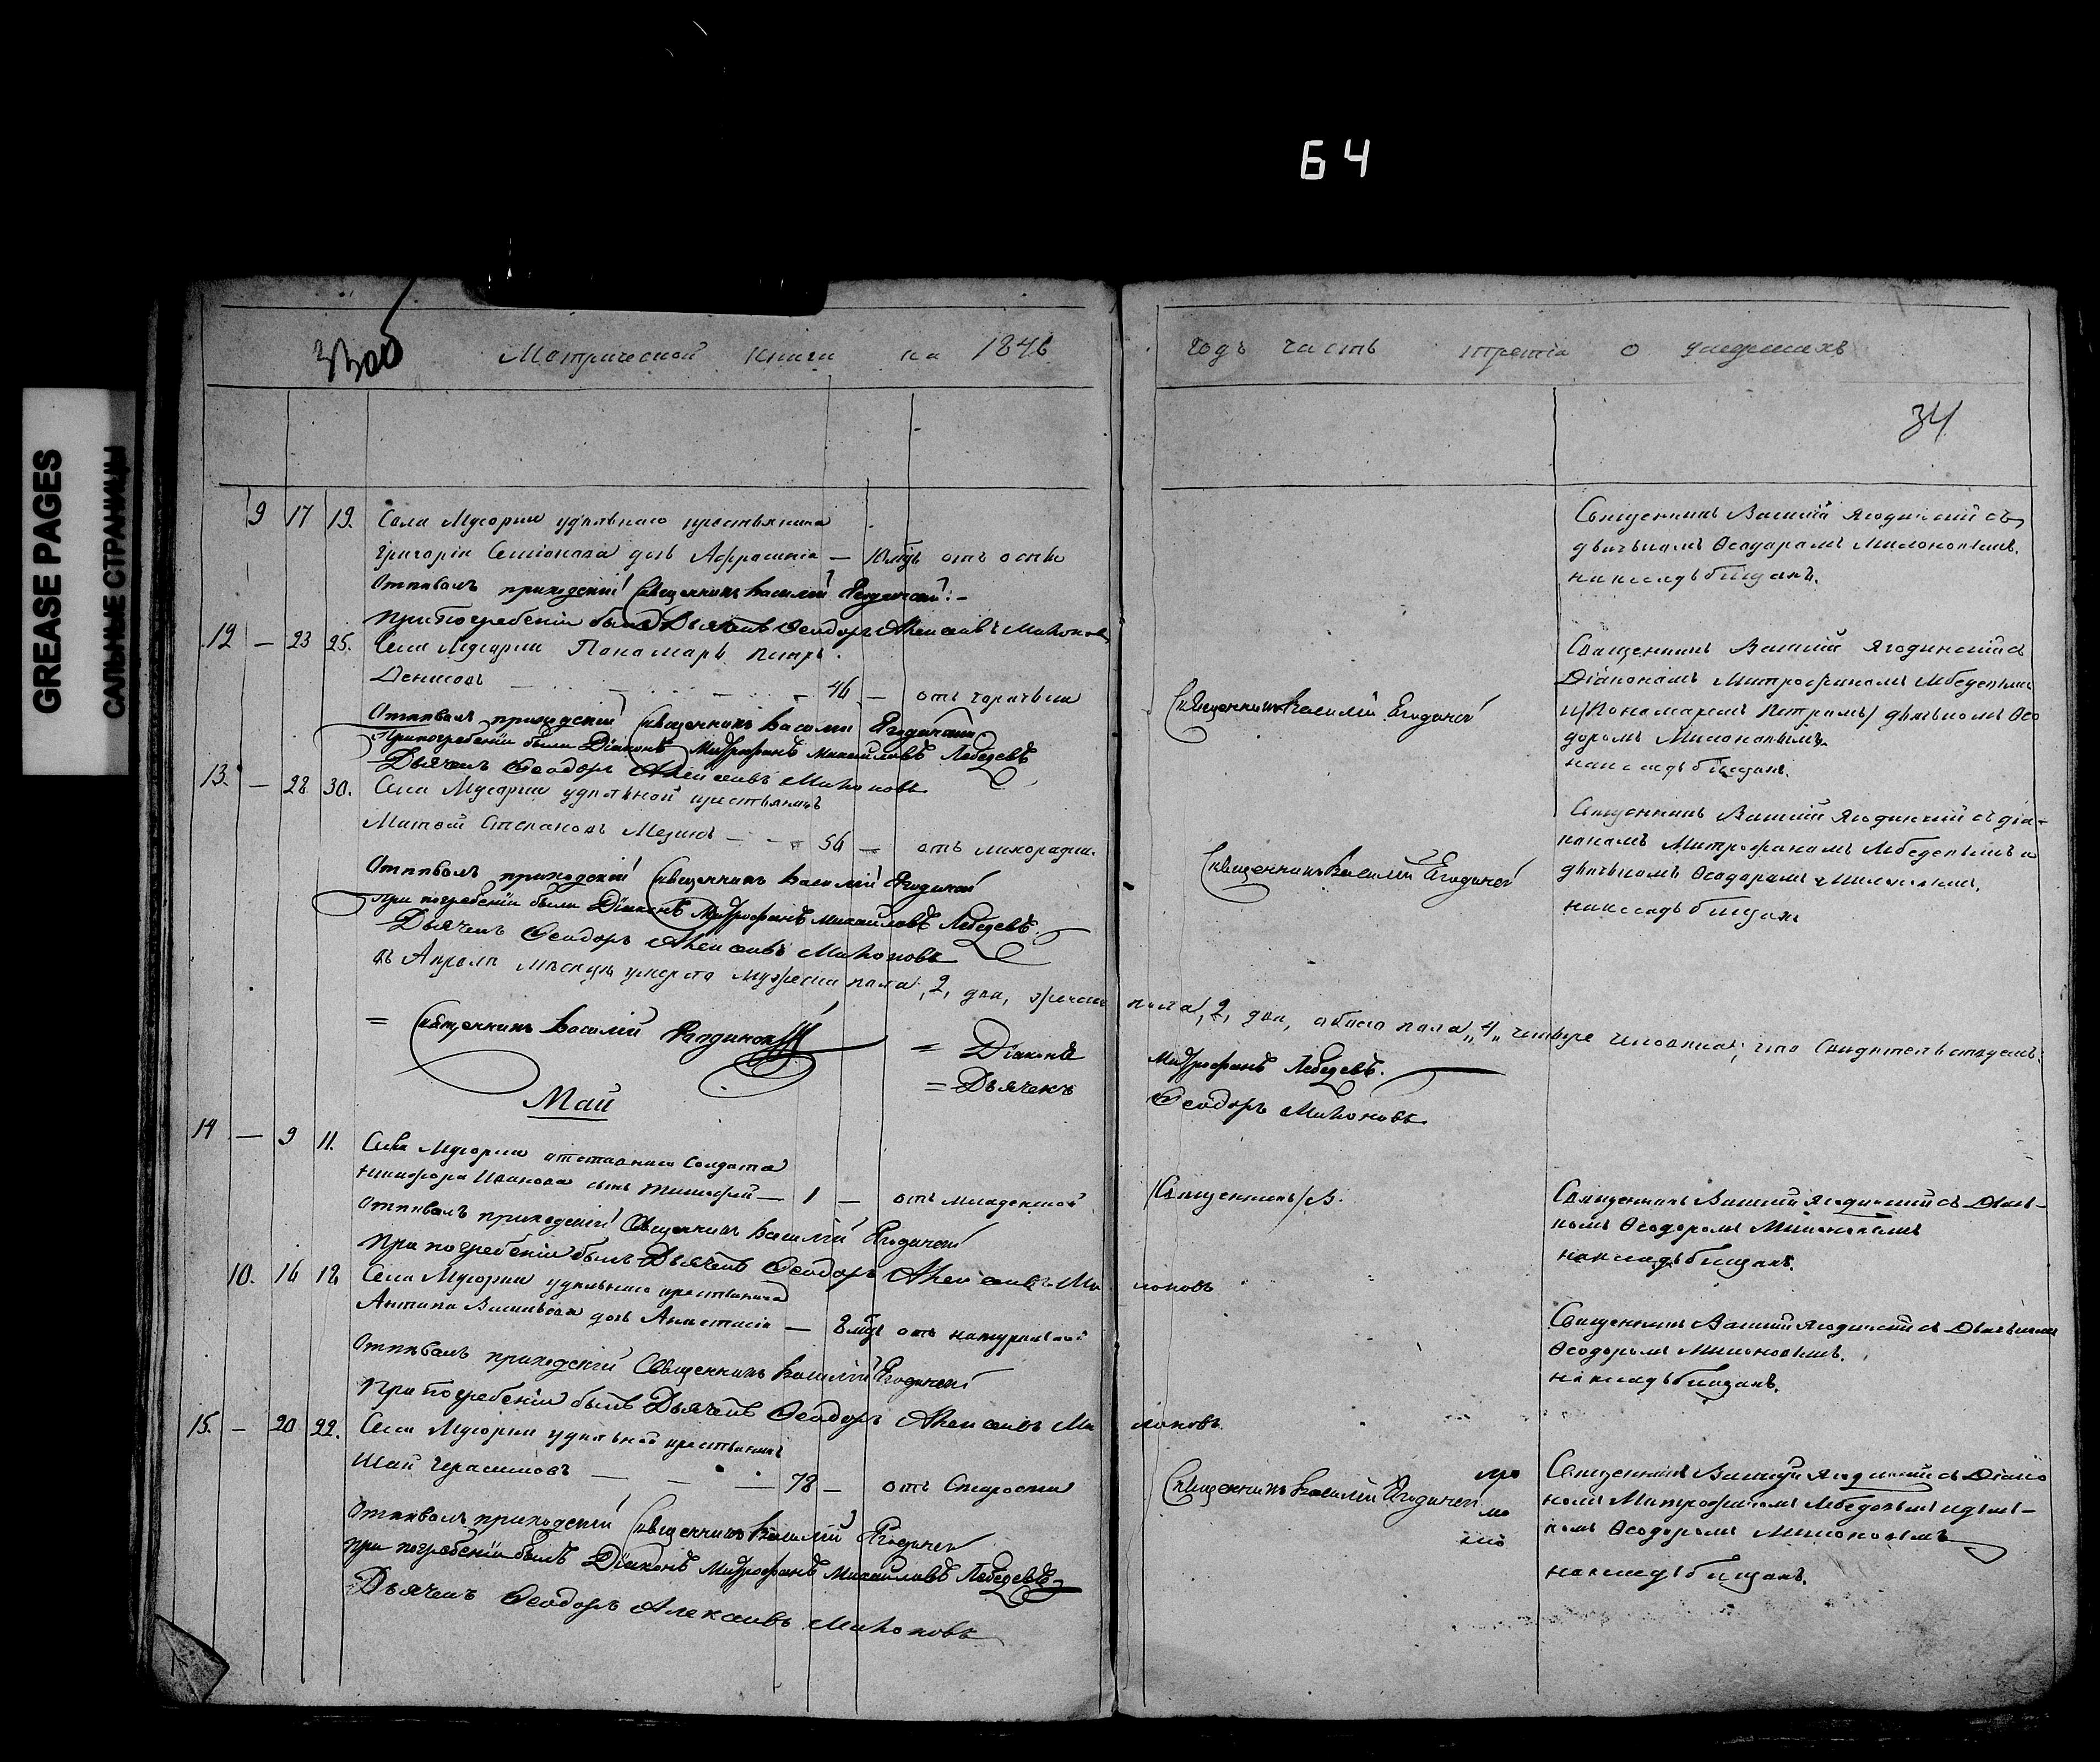 64
GREASE PAGES
САЛЬНЫЕ СТРАНИЦЫ
Метрической книги на 1846
годъ часть третiя о умершихъ
34
9 17 19. Села Мусорки удѣльнаго крестьянина
Григорiя Семiонова дочь Афросинiя — отъ оспы
Отпѣвалъ приходскiй Священникъ Василiй Ягодинскiй
При погребенiи былъ Дьячекъ Өеодоръ Алексѣевъ Милоновъ
Священникъ Василiй Ягодинскiй съ
дьячькомъ Өеодоромъ Милоновымъ.
на кладьбищахъ.
12 — 23 25. Села Мусорки Пономарь Петръ
Денисовъ — 46 — отъ горячьки
Отпѣвалъ приходскiй Священникъ Василiй Ягодинскiй
При погребенiи были Дiаконъ Митрофанъ Михайловъ Лебедевъ
Дьячекъ Өеодоръ Алексѣевъ Милоновъ
Священникъ Василiй Ягодинскiй
Священникъ Василiй Ягодинскiй съ
Дiакономъ Митрофаномъ Лебедевымъ
и /Пономаремъ Петромъ/ дьячькомъ Өео
доромъ Милоновымъ
на кладьбищахъ.
13. — 28 30. Села Мусорки удѣльной крестьянинъ
Матвѣй Степановъ — 56 — отъ лихорадки.
Отпѣвалъ приходскiй Священникъ Василiй Ягодинскiй
При погребенiи были Дiаконъ Митрофанъ Михайловъ Лебедевъ.
Дьячекъ Өеодоръ Алексѣевъ Милоновъ
Священникъ Василiй Ягодинскiй
Священникъ Василiй Ягодинскiй съ дiа-
кономъ Митрофаномъ Лебедевымъ и
дьячькомъ Өеодоромъ Милоновымъ.
на кладьбищахъ
въ Апрѣлѣ мѣсяцѣ умерло мужеска пола, 2, два, женска пола, 2, два, обоего пола „4„ четыре человѣка; что Свидѣтельствуемъ
= Священникъ Василiй Ягодинскiй
= Дiаконъ Митрофанъ Лебедевъ.
= Дьячекъ Өеодоръ Милоновъ
Май
14 — 9 11. Села Мусорки отставнаго Солдата
Никифора Иванова сынъ Тимофей — 1 — отъ младенской
Отпѣвалъ приходскiй Священникъ Василiй Ягодинскiй
При погребенiи былъ Дьячекъ Өеодоръ Алексѣевъ Ми лоновъ
/Священникъ/ В.
Священникъ Василiй Ягодинскiй съ Дьячь-
комъ Өеодоромъ Милоновымъ
на кладьбищахъ.
10. 16 18 Села Мусорки удѣльнаго крестьянина
Антипа Васильева дочь Анастасiя — отъ натуральной
Отпѣвалъ приходскiй Священникъ Василiй Ягодинскiй
При погребенiи былъ Дьячекъ Өеодоръ Алексѣевъ Ми лоновъ.
Священникъ Василiй Ягодинскiй съ Дьячькомъ
Өеодоромъ Милоновымъ.
на кладьбищахъ.
15. — 20 22. Села Мусорки удѣльной крестьянинъ
Герасимовъ — 78 — отъ Старости
Отпѣвалъ приходскiй Священникъ Василiй Ягодинскiй
При погребенiи былъ Дiаконъ Митрофанъ Михайловъ Лебедевъ
Дьячекъ Өеодоръ Алексѣевъ Милоновъ
Священникъ Василiй Ягодинскiй
Священникъ Василiй Ягодинскiй съ Дiако
номъ Митрофаномъ Лебедевымъ и дьячь-
комъ Өеодоромъ Милоновымъ
на кладьбищахъ.